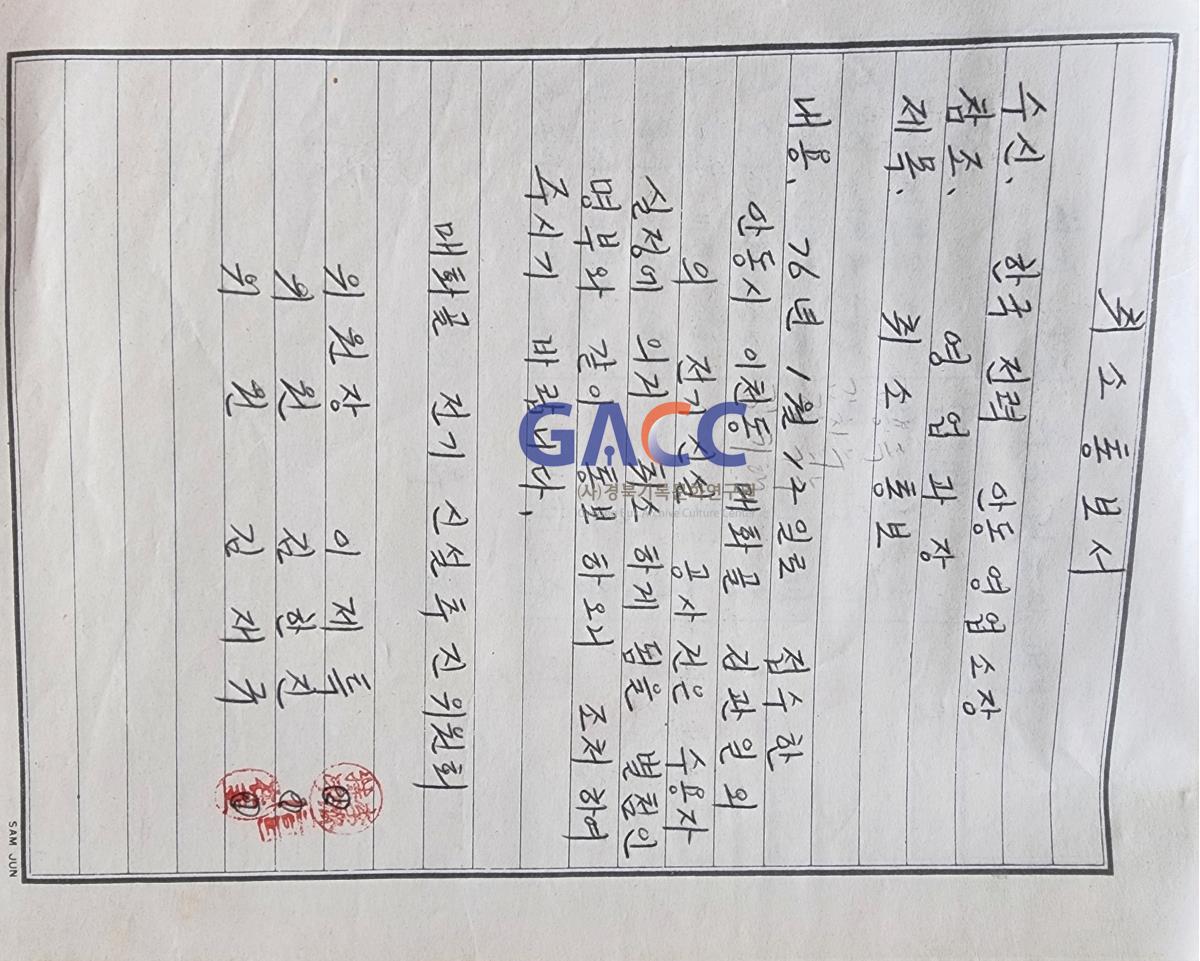 취소통보서
수신, 한국 전력 안동 영업소장
참조, 영업과장
제목, 취소통보
내용, 76년 1월 22일로 접수한
안동시 이천동 매화골 김판일 외
의 전기 신설 공사건은 수용가
실정에 의거 취소하게 됨을 별첨인
명부와 같이 통보하오니 조처하여
주시기 바랍니다,
매화골 전기 신설추진위원회
위원장 이제득
위원 김한진
위원 김재구
GACC
(사)경북기록문화연구원
SAM JUN